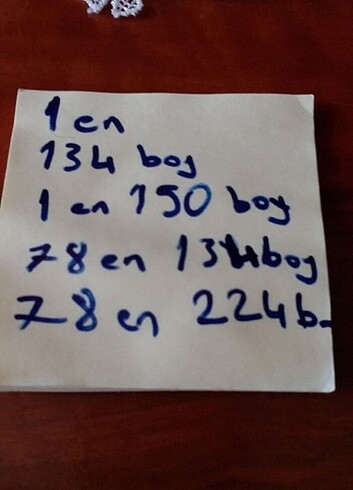 1 en
134 boy
1 en 150 boy
78 en 134 boy
78 en 224 b